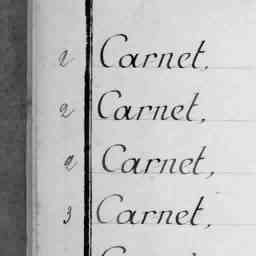 2 Carnet,
2 Carnet,
2 Carnet,
3 Carnet,